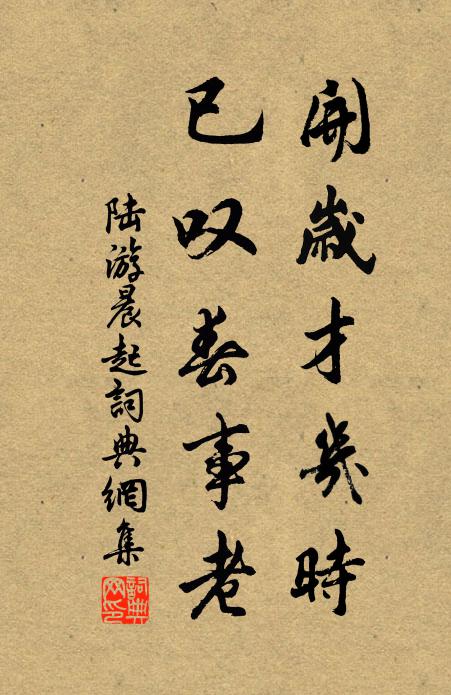 開歲才幾時
已叹春事老
陆游晨起詞典網集
詞典网印